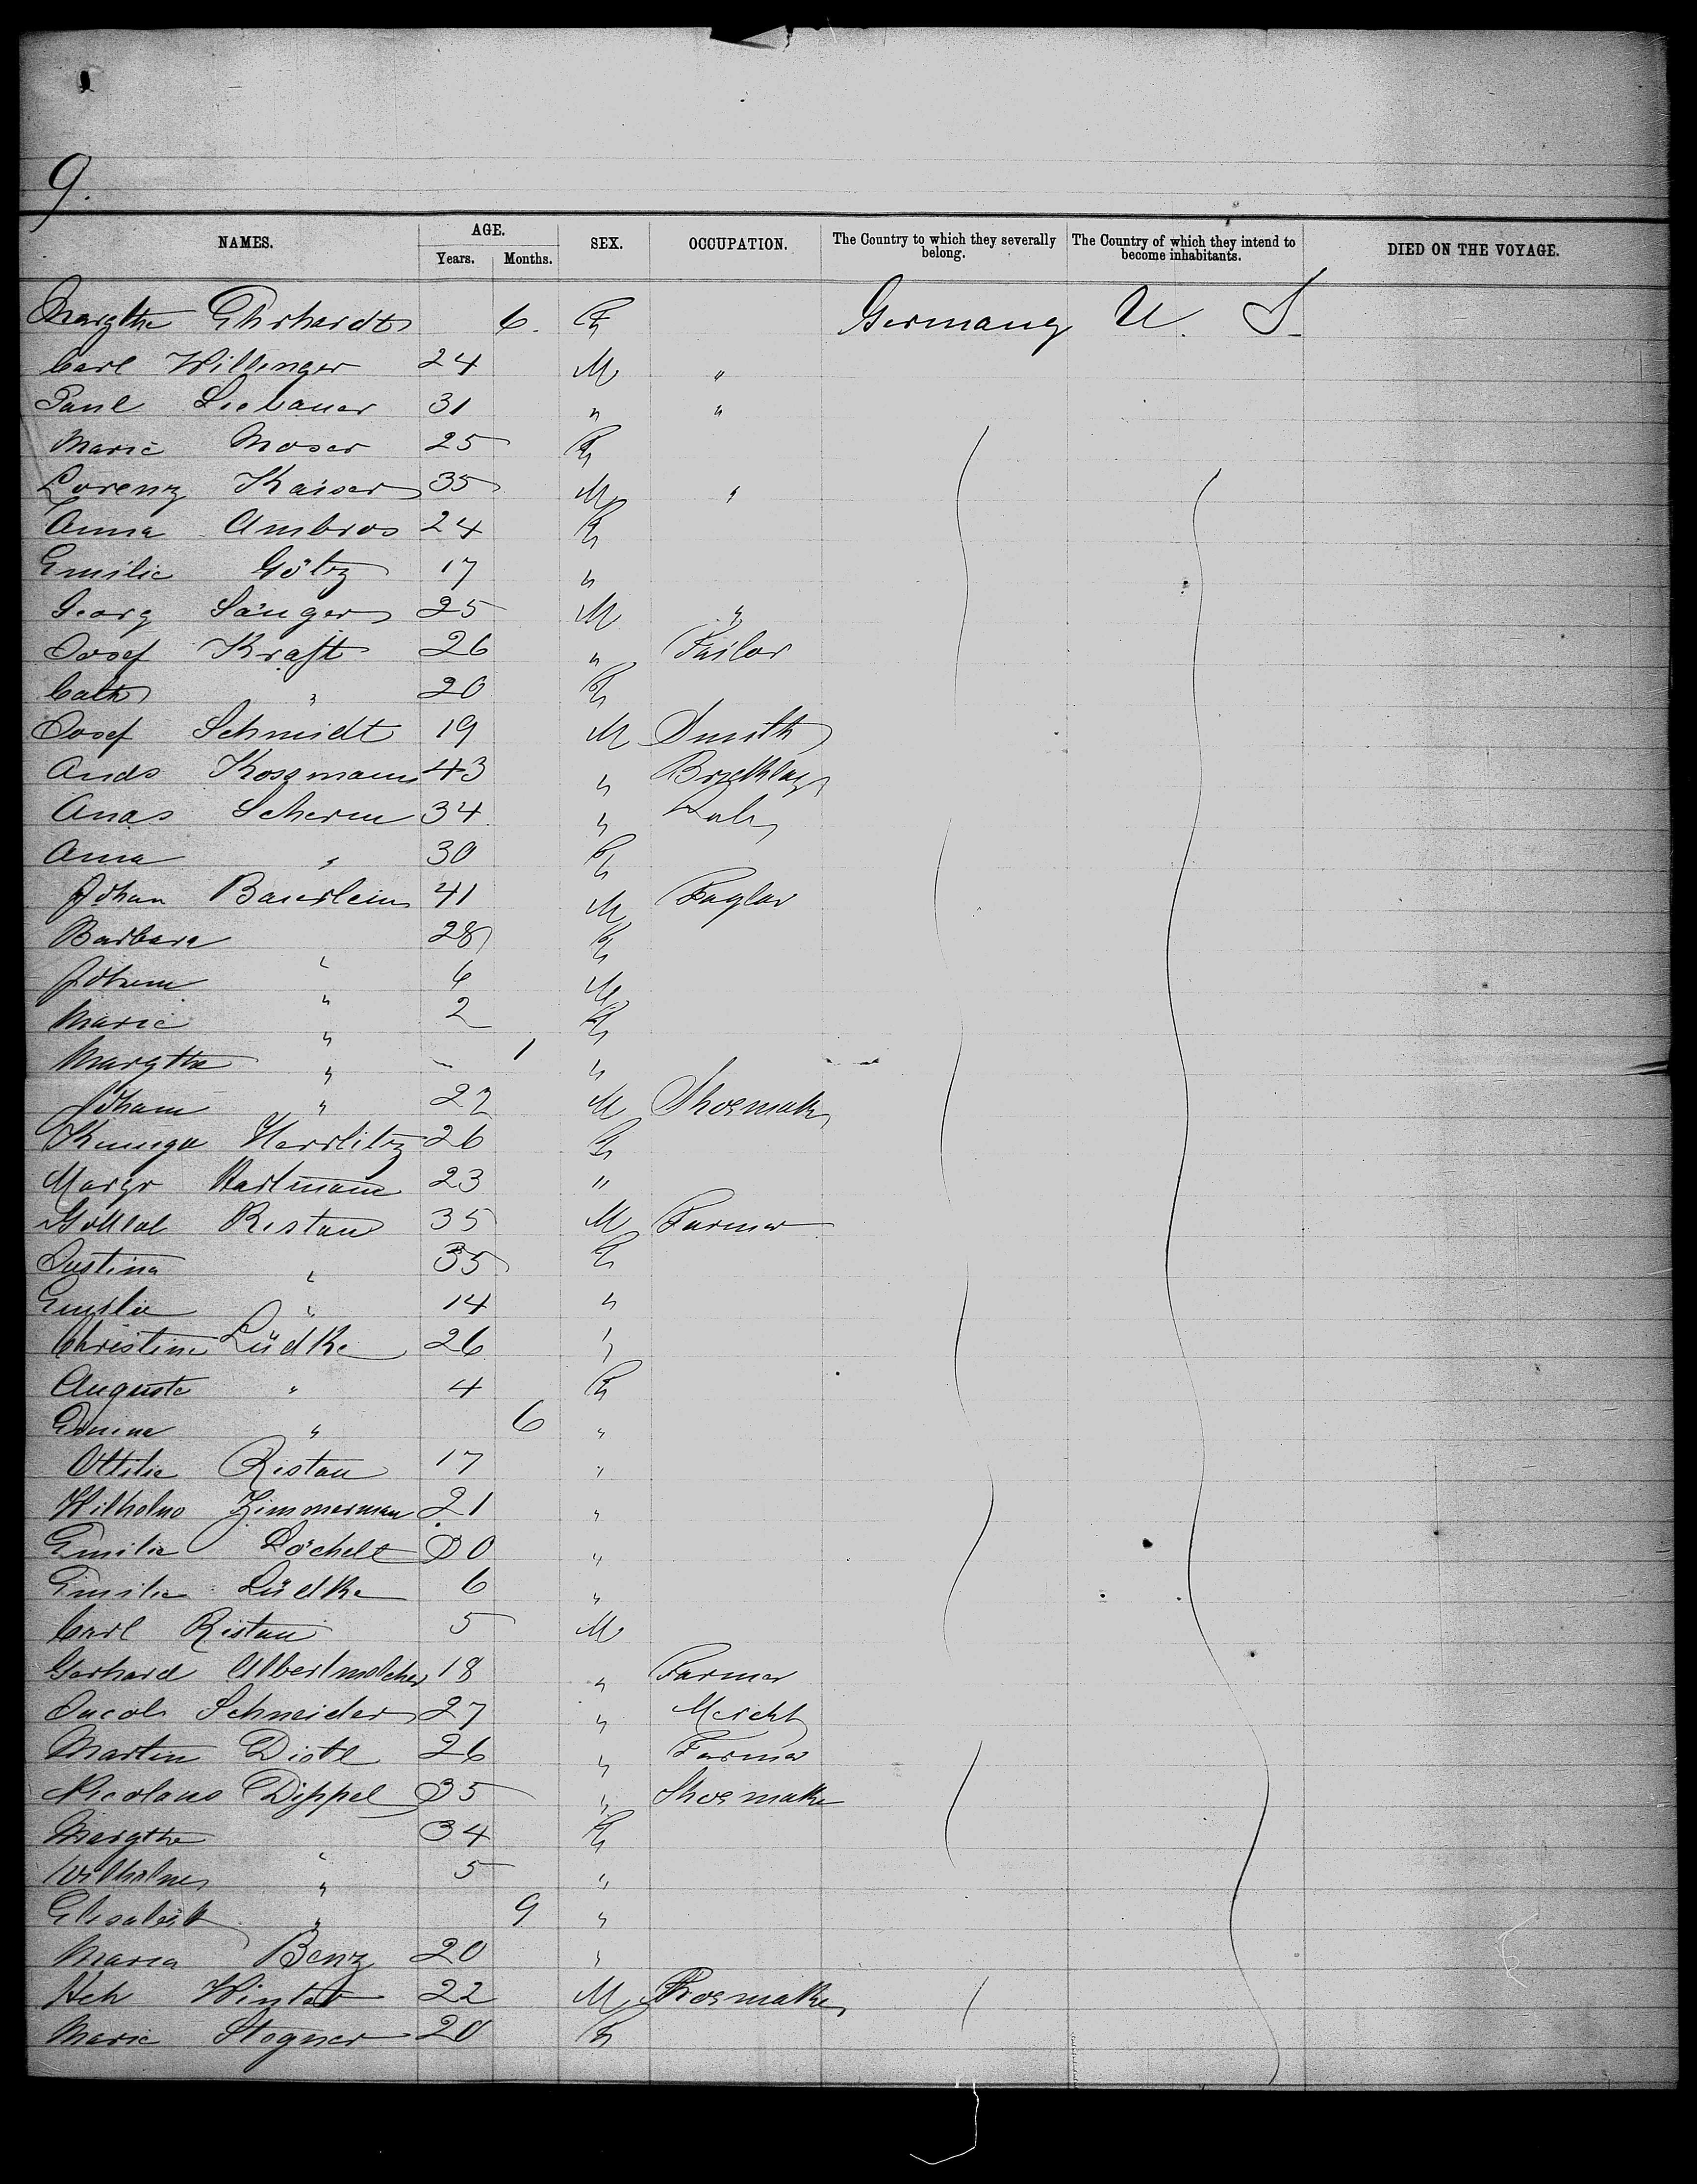 9.
NAMES. AGE. Years. Months. SEX. OCCUPATION. The Country to which they severally belong. The Country of which they intend to become inhabitants. DIED ON THE VOYAGE.
Margthe Ehrhardt 6. F Germany U. S.
Carl Willinger 24 M "
Paul Liebauer 31 " "
Marie Moser 25 F
Lorenz Kaiser 35 M "
Anna Ambros 24 F
Emilie Götz 17 "
Georg Sänger 25 M "
Josef Kraft 26 " Tailor
Cath " 20 F
Josef Schmidt 19 M Smith
Ands Kossmann 43 "
Anas Scherm 34 "
Anna " 30 F
Johan Bauerlein 41 M
Barbara " 28 F
Johann " 6 M
Marie " 2 F
Margthe " - 1 "
Johann " 22 M Shoemak
Herrlitz 26 F
Margr Hartmann 23 "
Ristau 35 M Farmer
Justina " 35 F
Emilie " 14 "
Christine Lüdke 26 "
Auguste " 4 F
" 6 "
Ottilie Ristau 17 "
Zimmerman 21 "
Emilie 30 "
Emilie Lüdke 6 "
Carl Ristau 5 M
Gerhard 18 " Farmer
Jacob Schneider 27 " Mercht
Martin Distl 26 " Farmer
Nicolaus Dippel 35 " Shoemake
Margthe " 34 F
" 5 "
Elisabeth " 9 "
Maria Benz 20 "
Hch Winter 22 M Shoemaker
Marie Stogner 20 F